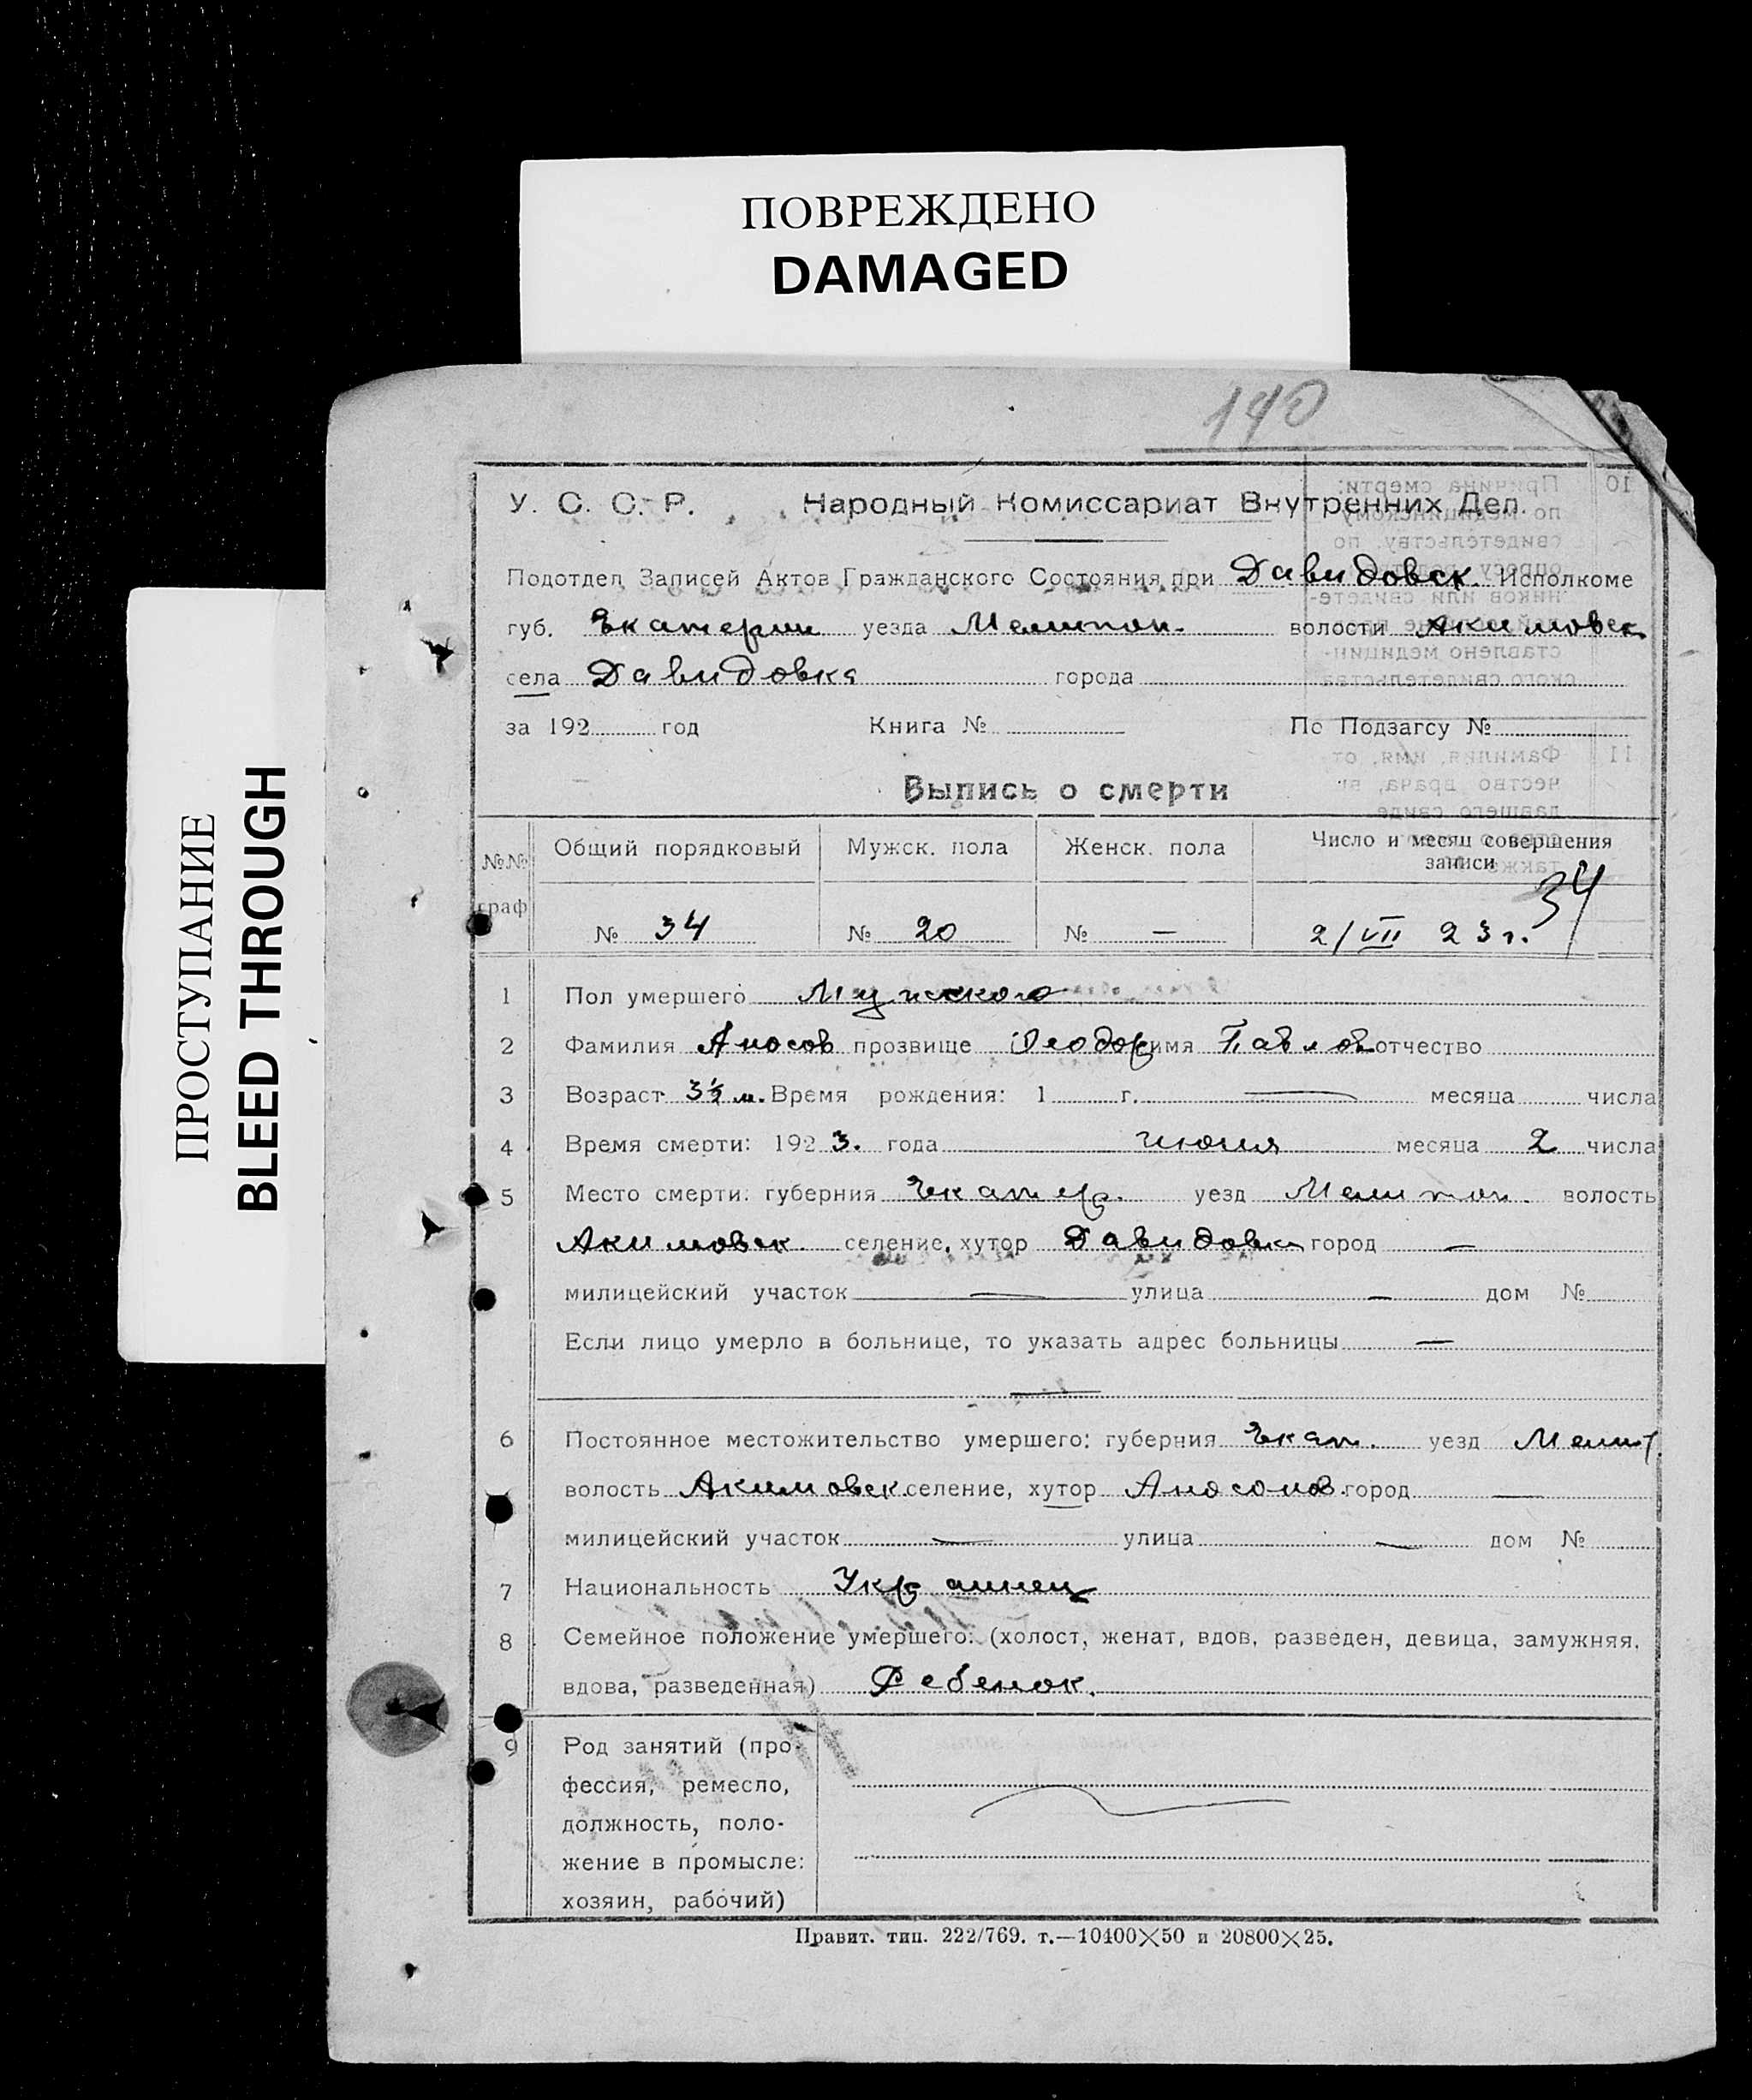 ПОВРЕЖДЕНО
DAMAGED
ПРОСТУПАНИЕ
BLEED THROUGH
190
У. С. С. Р. Народный Комиссариат Внутренних Дел.
Подотдел Записей Актов Гражданского Состояния при Давидовск. Исполкоме
губ. Екатерин уезда Мелитоп. волости Акимовск
села Давидовка города
за 192 год Книга № По Подзагсу №
Выпись о смерти
№№ граф Общий порядковый Мужск. пола Женск. пола Число и месяц совершения записи
34
№ 34 № 20 № — 2/VII 23 г.
1 Пол умершего Мужского
2 Фамилия Аносов прозвище Феодор имя Павлов отчество
3 Возраст 3½ м. Время рождения: 1 г. — месяца числа
4 Время смерти: 192 3. года июня месяца 2 числа
5 Место смерти: губерния Екатер. уезд Мелитоп. волость
Акимовск. селение, хутор Давидовка город —
милицейский участок — улица — дом №
Если лицо умерло в больнице, то указать адрес больницы —
—
6 Постоянное местожительство умершего: губерния Екат. уезд Мелит.
волость Акимовск. селение, хутор город —
милицейский участок — улица — дом №
7 Национальность Украинец
8 Семейное положение умершего: (холост, женат, вдов, разведен, девица, замужняя,
вдова, разведенная) Ребенок.
9 Род занятий (про-
фессия, ремесло,
должность, поло-
жение в промысле:
хозяин, рабочий)
Правит. тип. 222/769. т.—10400×50 и 20800×25.